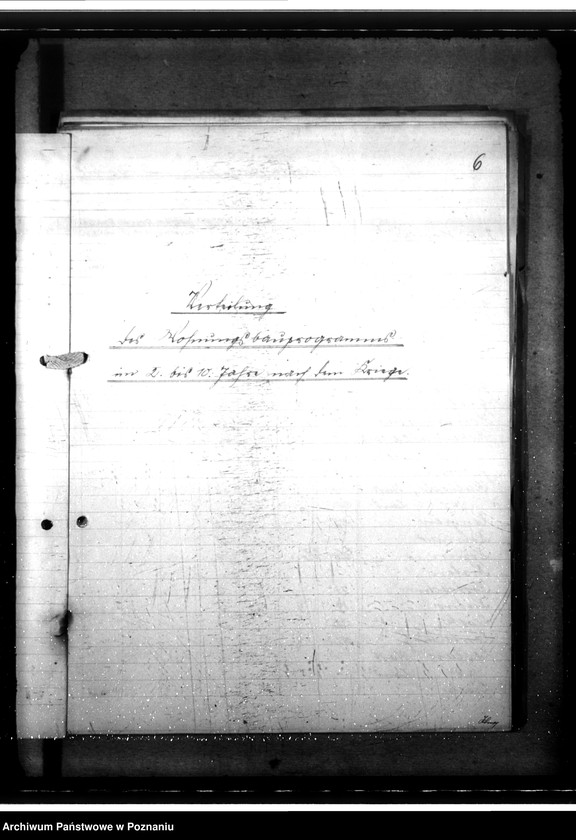 6
Verteilung
des Wohnungsbauprogramms
im 2. bis 10. Jahre nach dem Kriege.
Archiwum Państwowe w Poznaniu